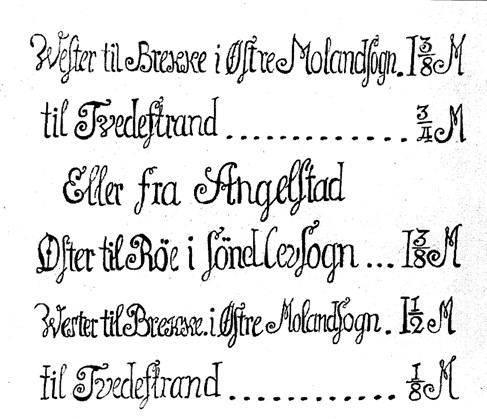 Wester til Brekke i Østre Molandsogn. 1 3/8 M
til Tvedestrand ............. 3/4 M
Eller fra Angelstad
Øster til Röe i Söndlevsogn ... 1 3/8 M
Wester til Brekke. i Østre Molandsogn. 1 1/2 M
til Tvedestrand ............. 1/8 M